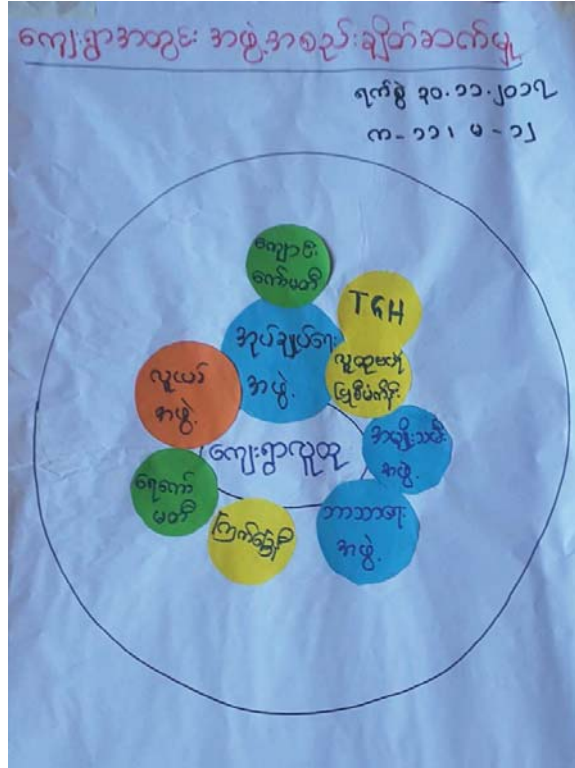 ကျေးရွာအတွင်း အဖွဲ့အစည်းချိတ်ဆက်မှု
ရက်စွဲ ၃၀.၁၁.၂၀၁၇
က-၁၁၊ မ-၁၂
ကျောင်း
ကော်မတီ
TGH
အုပ်ချုပ်ရေး
အဖွဲ့
လူထုဗဟို
ပြုစီမံကိန်း
လူငယ်
အဖွဲ့
အမျိုးသမီး
အဖွဲ့
ကျေးရွာလူထု
ရေကော်
မတီ
ကြက်ခြေနီ
ဘာသာရေး
အဖွဲ့